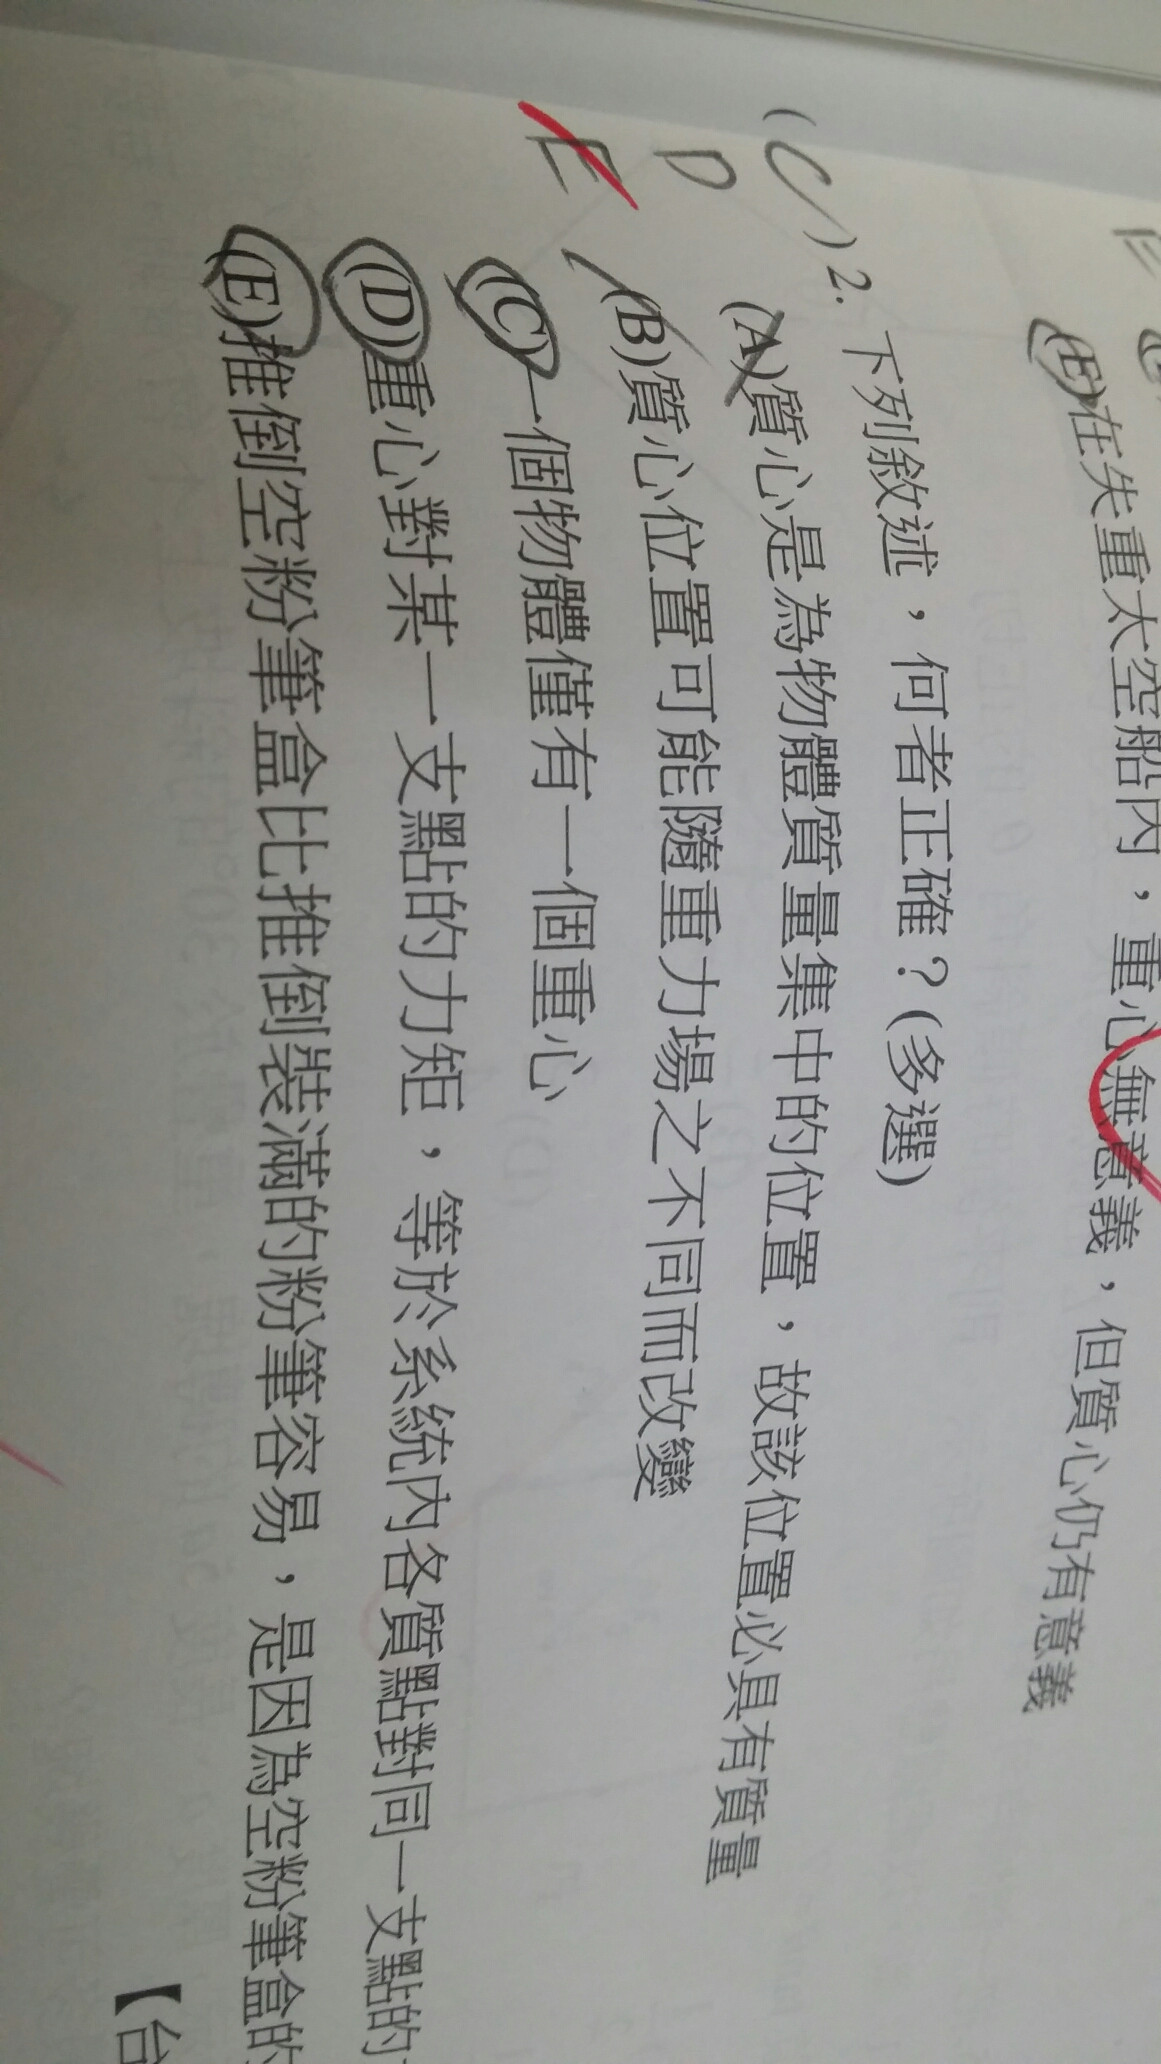 (E)在失重太空船內，重心無意義，但質心仍有意義
(C)2. 下列敘述，何者正確？(多選)
D
E
(A)質心是為物體質量集中的位置，故該位置必具有質量
(B)質心位置可能隨重力場之不同而改變
(C)一個物體僅有一個重心
(D)重心對某一支點的力矩，等於系統內各質點對同一支點的
(E)推倒空粉筆盒比推倒裝滿的粉筆容易，是因為空粉筆盒的
【台